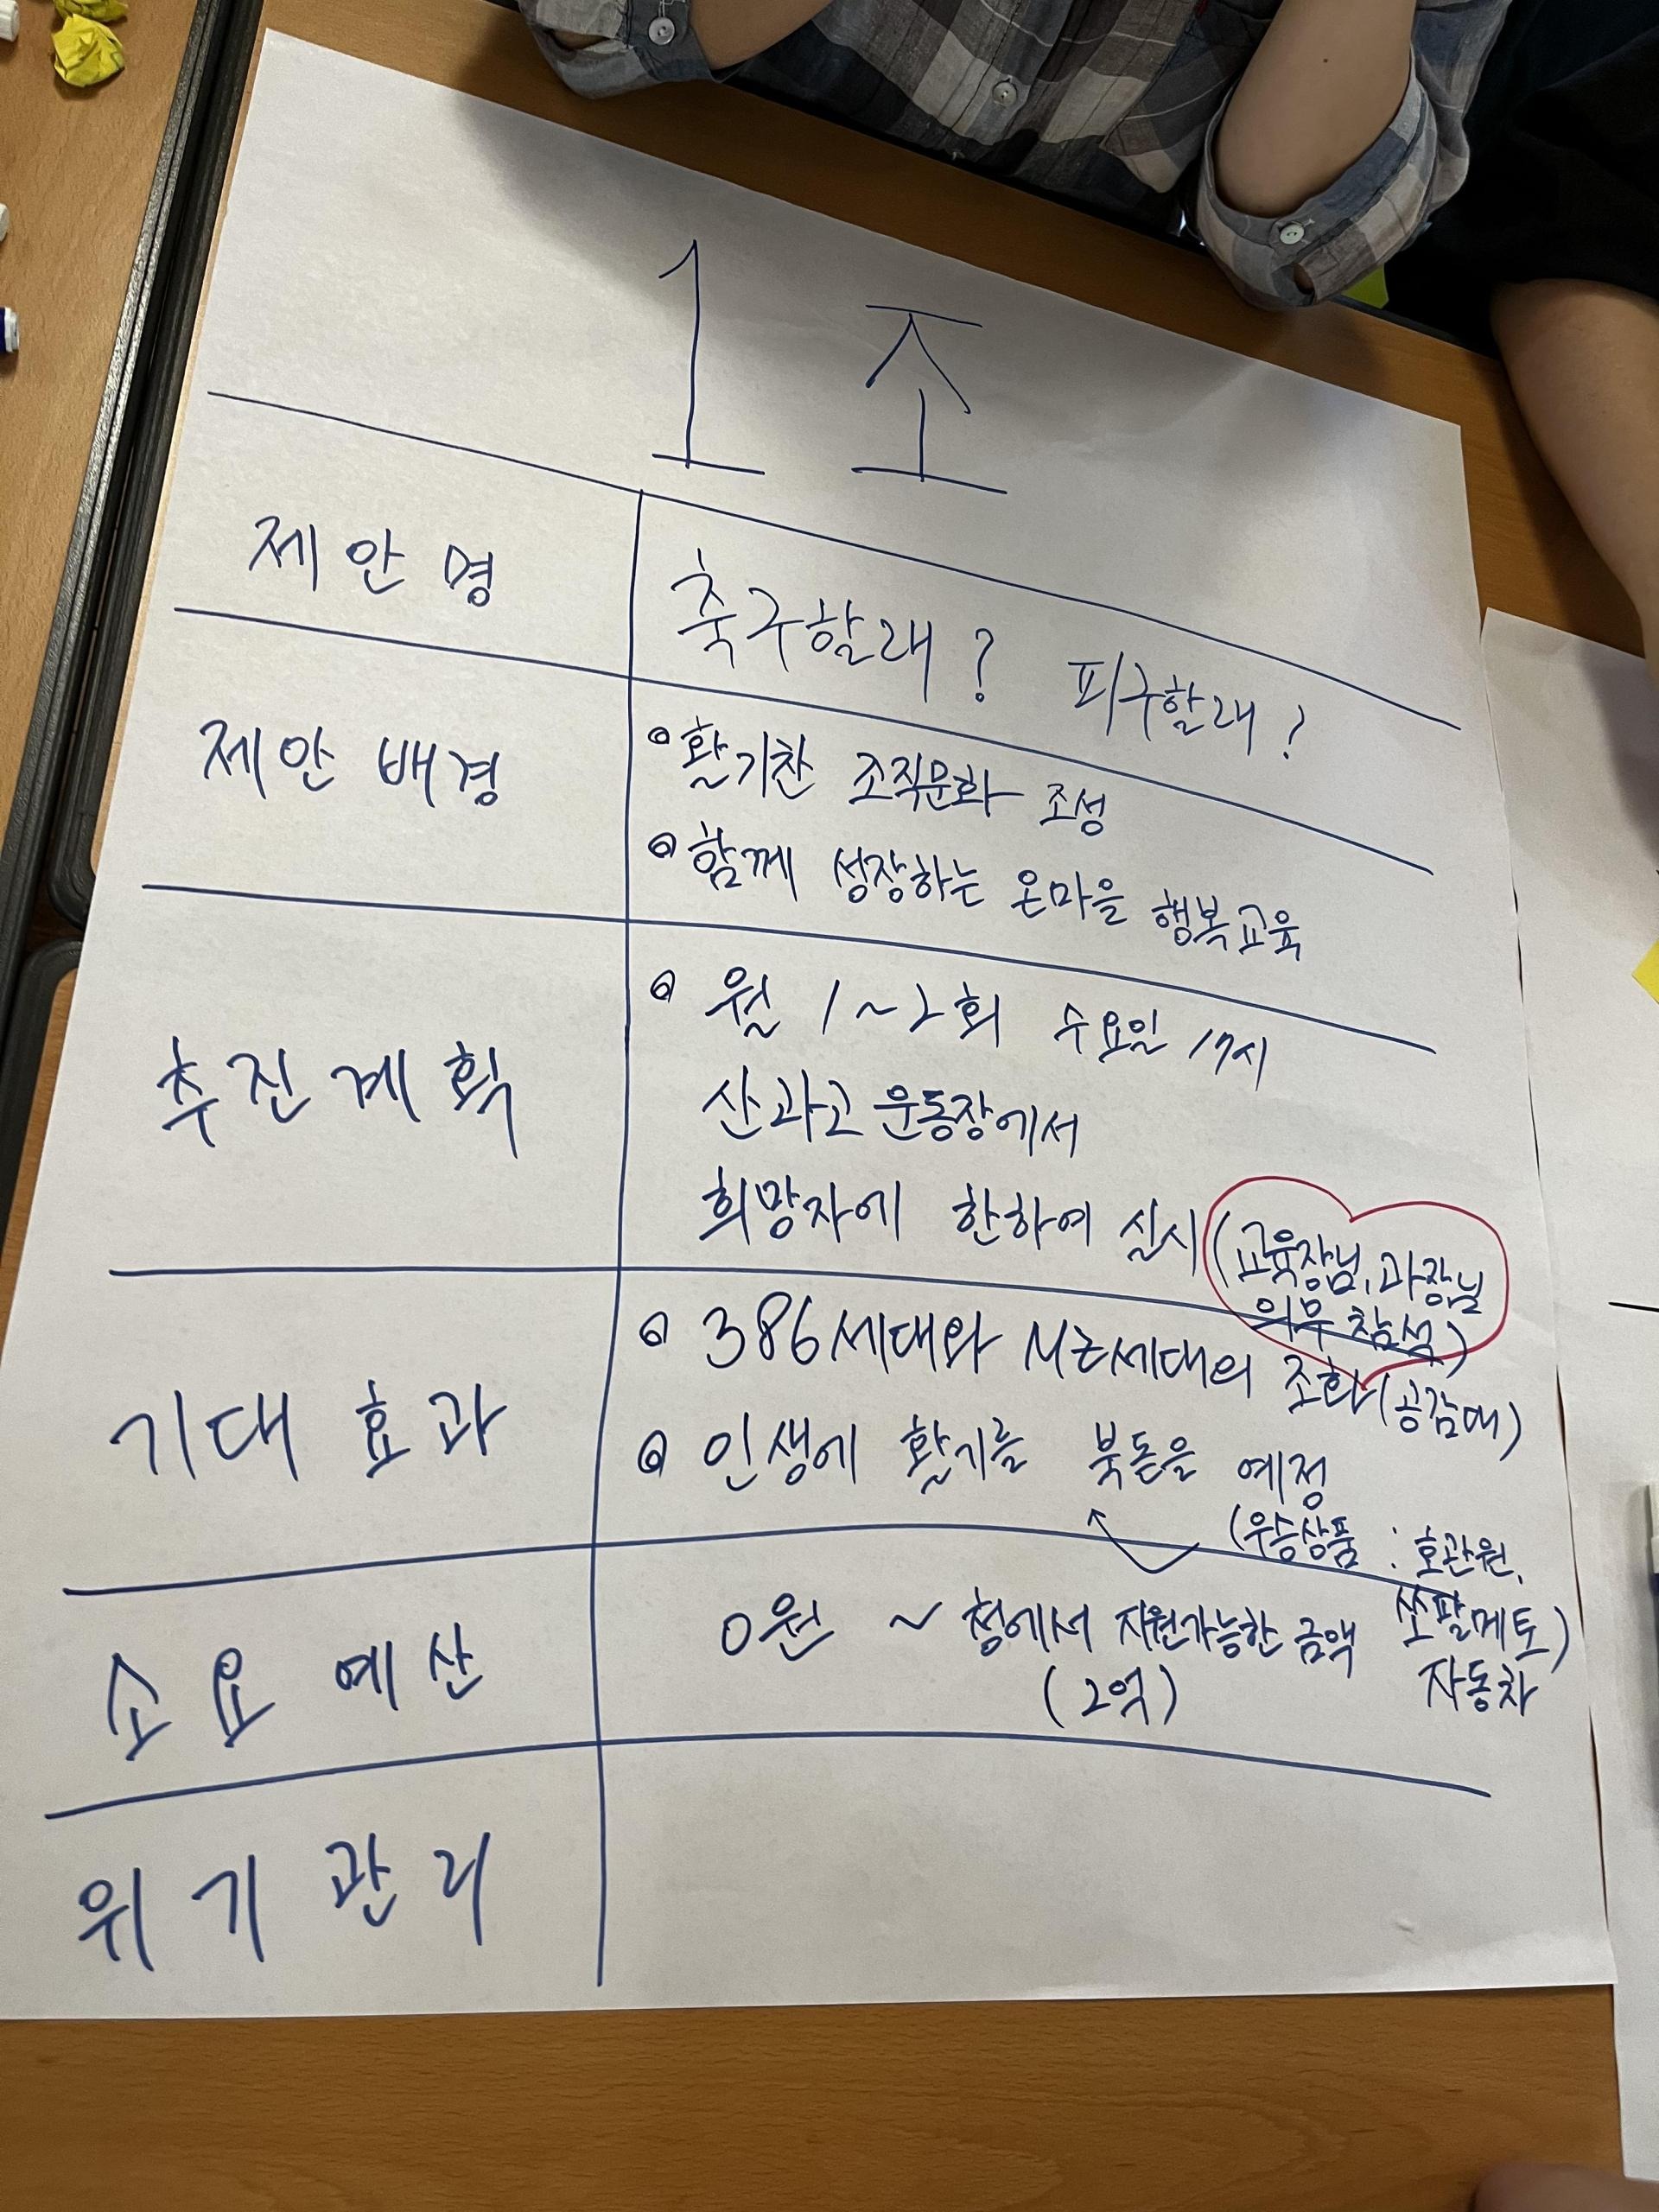 1조
제안명
축구할래? 피구할래?
제안 배경
활기찬 조직문화 조성
함께 성장하는 온마을 행복교육
추진계획
월 1~2회 수요일 17시
산과고 운동장에서
희망자에 한하여 실시 (교육장님, 과장님
의무 참석)
기대 효과
386세대와 MZ세대의 조화(공감대)
인생에 활기를 북돋을 예정
(우승상품 : 호관원,
쏘팔메토)
자동차
소요 예산
0원 ~ 청에서 지원가능한 금액
(2억)
위기관리